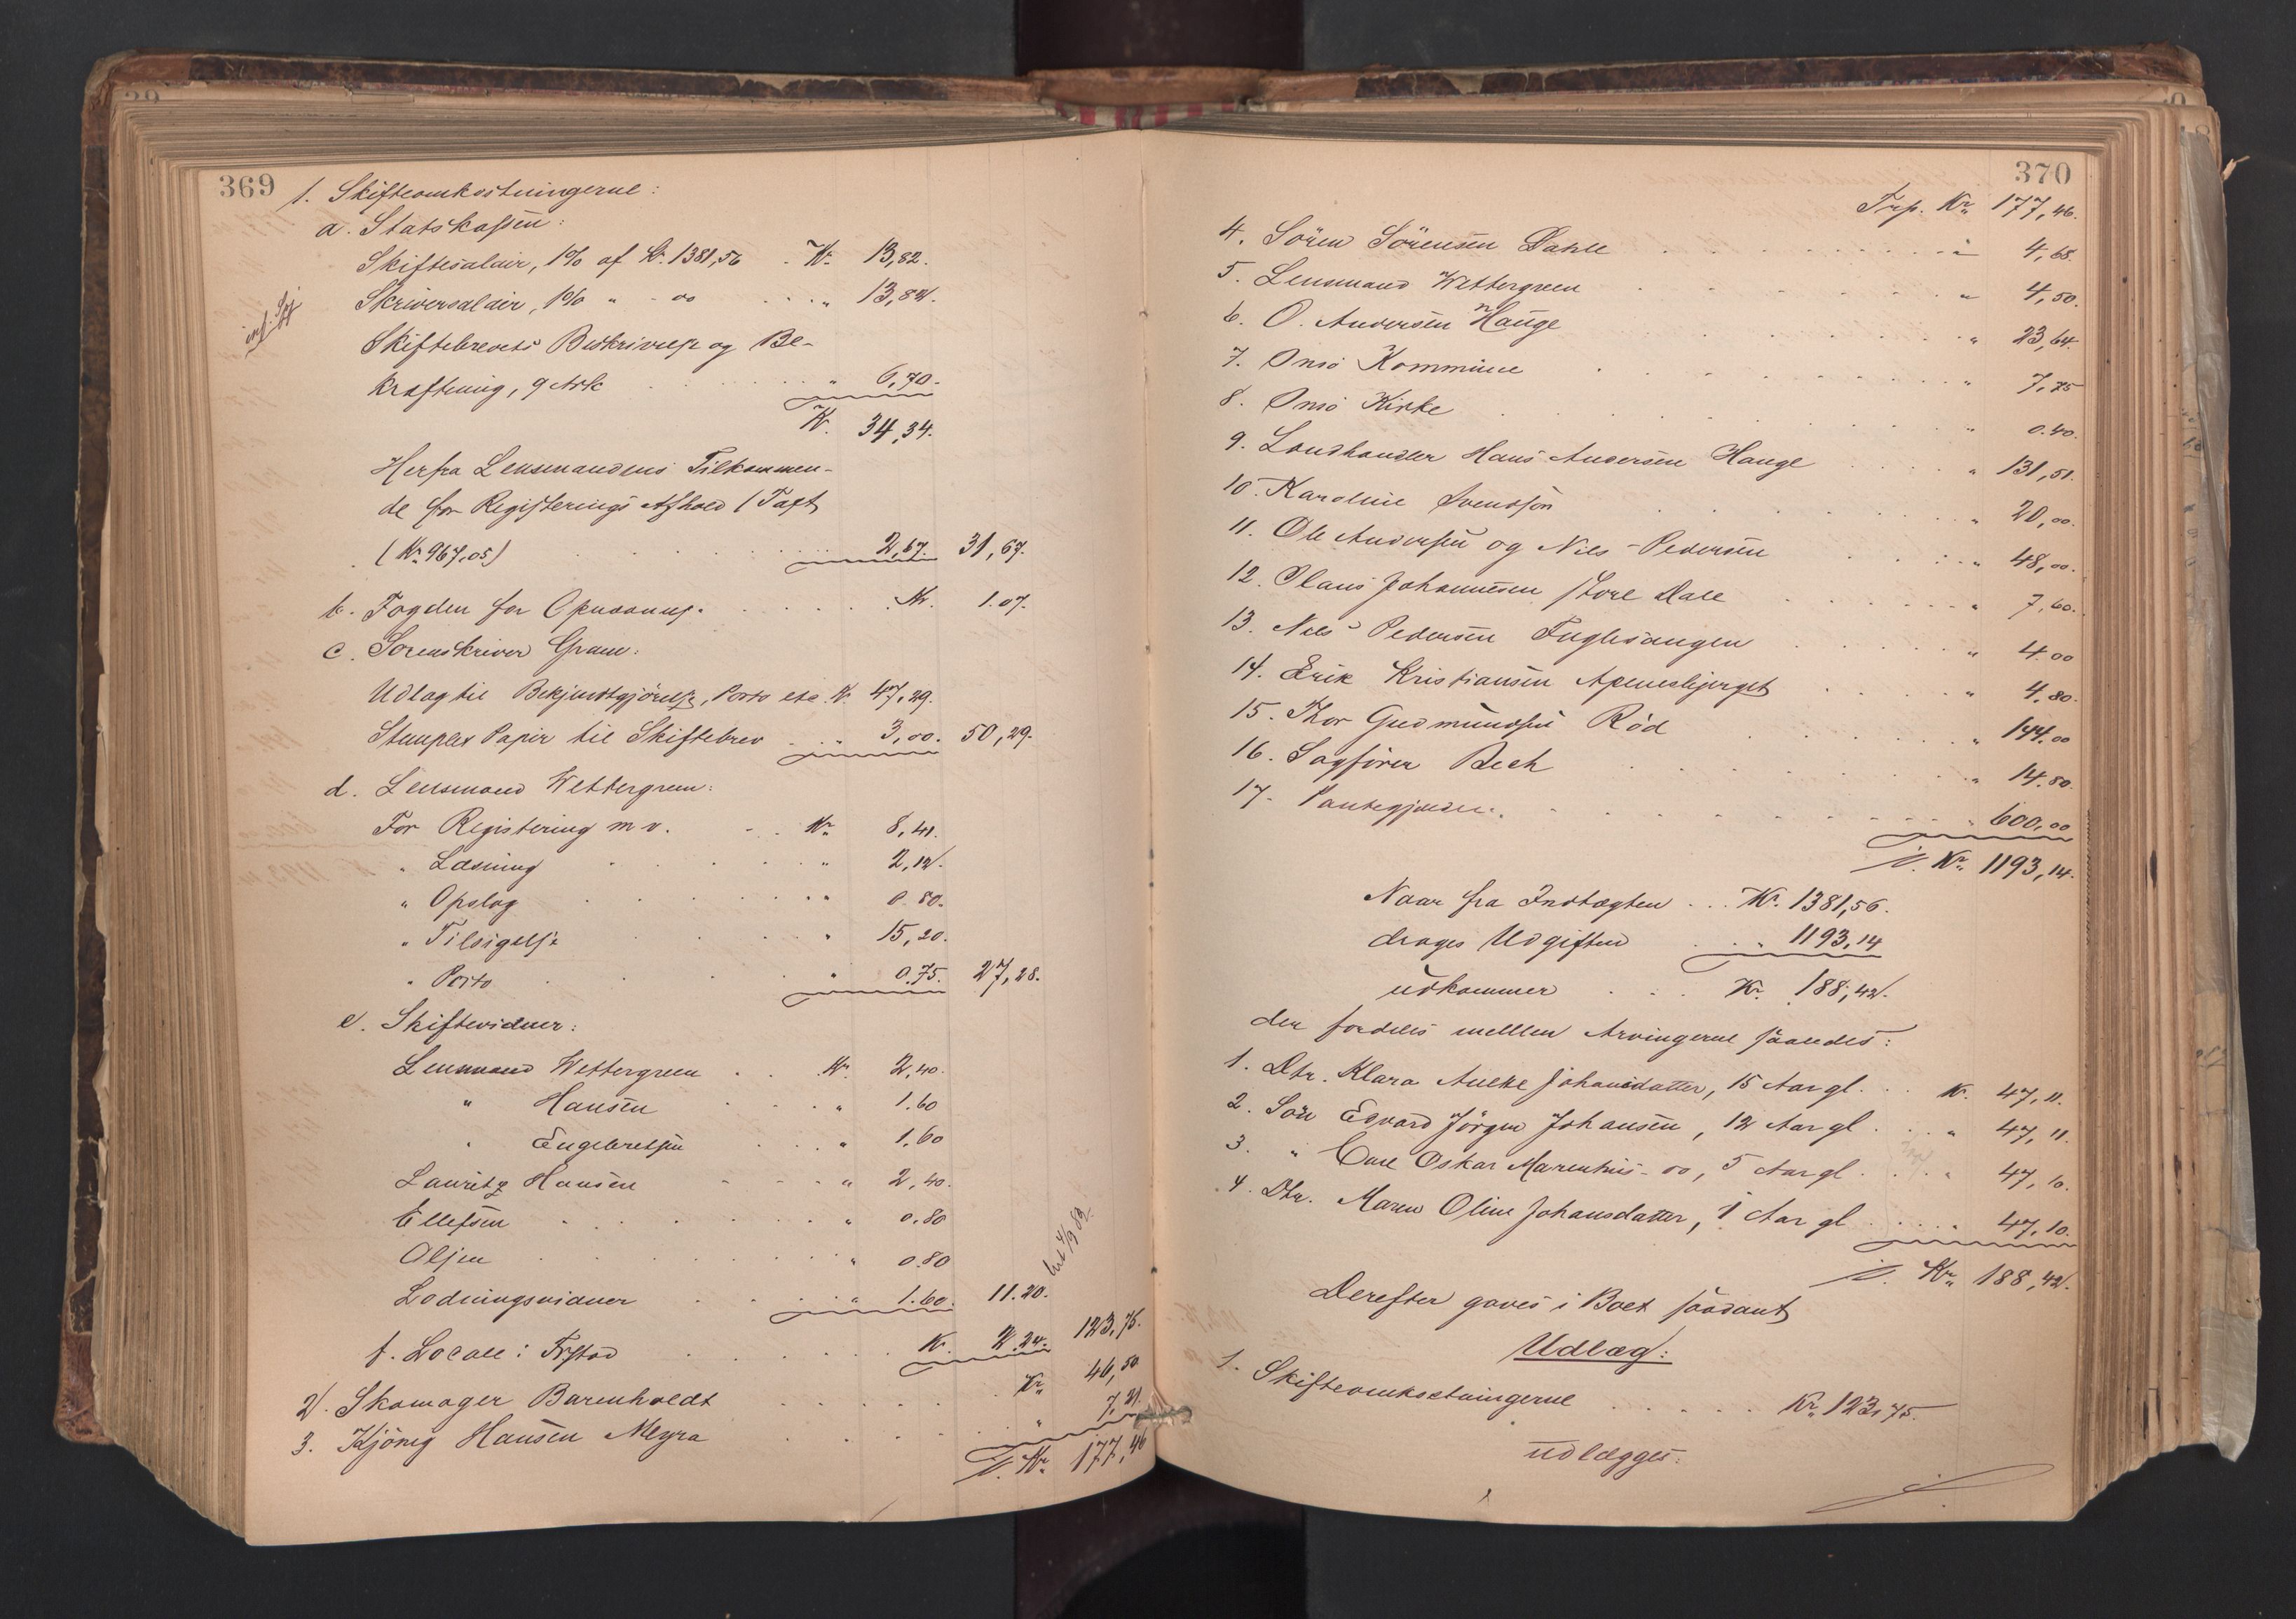 369
1. Skifteomkostningerne:
a. Statskassen:
Skiftesalair, 1% af Kr. 1381,56 . Kr. 13,82.
Skriversalair, 1% " - oo . . . . " 13,82.
Skiftebrevets Beskrivelse og Be-
kræftning, 9 Ark . . . . " 6,70.
Kr. 34,34.
Herfra Lensmandens Tilkommen-
de for Registerings Afhold (Taxt
(Kr. 967,05) . . . . 2,67. 31,67.
b. Fogden for . . . . Kr. 1.07.
c. Sorenskriver Gram:
Udlæg til Bekjendtgjørelse, Porto etc. Kr. 47,29.
Stemplet Papir til Skiftebrev . . . 3,00. 50,29.
d. Lensmand Wettergreen:
For Registering m v. . . Kr. 8,41.
" Læsning . . . . " 2,12.
" Opslag . . . . " 0.80.
" Tilsigelse . . . . " 15,20.
" Porto . . . . " 0.75. 27,28.
e. Skiftevidner:
Lensmand Wettergreen . . . Kr. 2,40.
" Hansen . . . . " 1.60
" Engebretsen . . . " 1,60
Lauritz Hansen . . . . " 2,40.
Ellefsen . . . . " 0.80
Olsen . . . . " 0.80
Lodningsvidner . . . . " 1.60. 11.20.
f. Locale: . . . . Kr. 2.24. 123,75.
2. Skomager Barenholdt . . . . Kr. 46,50
3. Kjönig Hansen Meyra . . . . " 7,21.
Kr. 177,46
370
Trp. Kr. 177,46.
4. Sören Sörensen Dahle . . . . " 4,68.
5. Lensmand Wettergreen . . . . " 4,50.
6. O. Andersen Hauge . . . . " 23,64.
7. Onsö Kommune . . . . " 7,75
8. Onsö Kirke . . . . " 0.40.
9. Landhandler Hans Andersen Hauge . . . . " 131,51.
10. Karoline Svendsen . . . . " 20,00.
11. Ole Andersen og Nils Pedersen . . . . " 48,00.
12. Olaus Johannesen Store Dale . . . . " 7,60.
13. Nils Pedersen Fuglesangen . . . . " 4.00
14. Erik Kristiansen Apenesbjerget . . . . " 4.80.
15. Thor Gudmundsen Röd . . . . " 144.00
16. Sagförer Bech . . . . " 14.80.
17. Pantegjælden . . . . " 600,00
Kr. 1193,14.
Naar fra Indtægten . . . Kr. 1381,56.
drages Udgiften . . . " 1193,14
udkommer . . . Kr. 188,42.
der fordeles mellem Arvingerne saaledes:
1. Dtr. Klara Aucke Johansdatter, 15 Aar gl. . . Kr. 47,11.
2. Sön Edvard Jörgen Johansen, 12 Aar gl. . . " 47,11.
3. " Carl Oskar Marenhius - oo, 5 Aar gl. . . " 47,10.
4. Dtr. Maren Oline Johansdatter, 1 Aar gl. . . . " 47,10.
Kr. 188,42.
Derefter gaves i Boet saadant
Udlæg:
1. Skifteomkostningerne . . . . . Kr. 123,75.
udlægges: